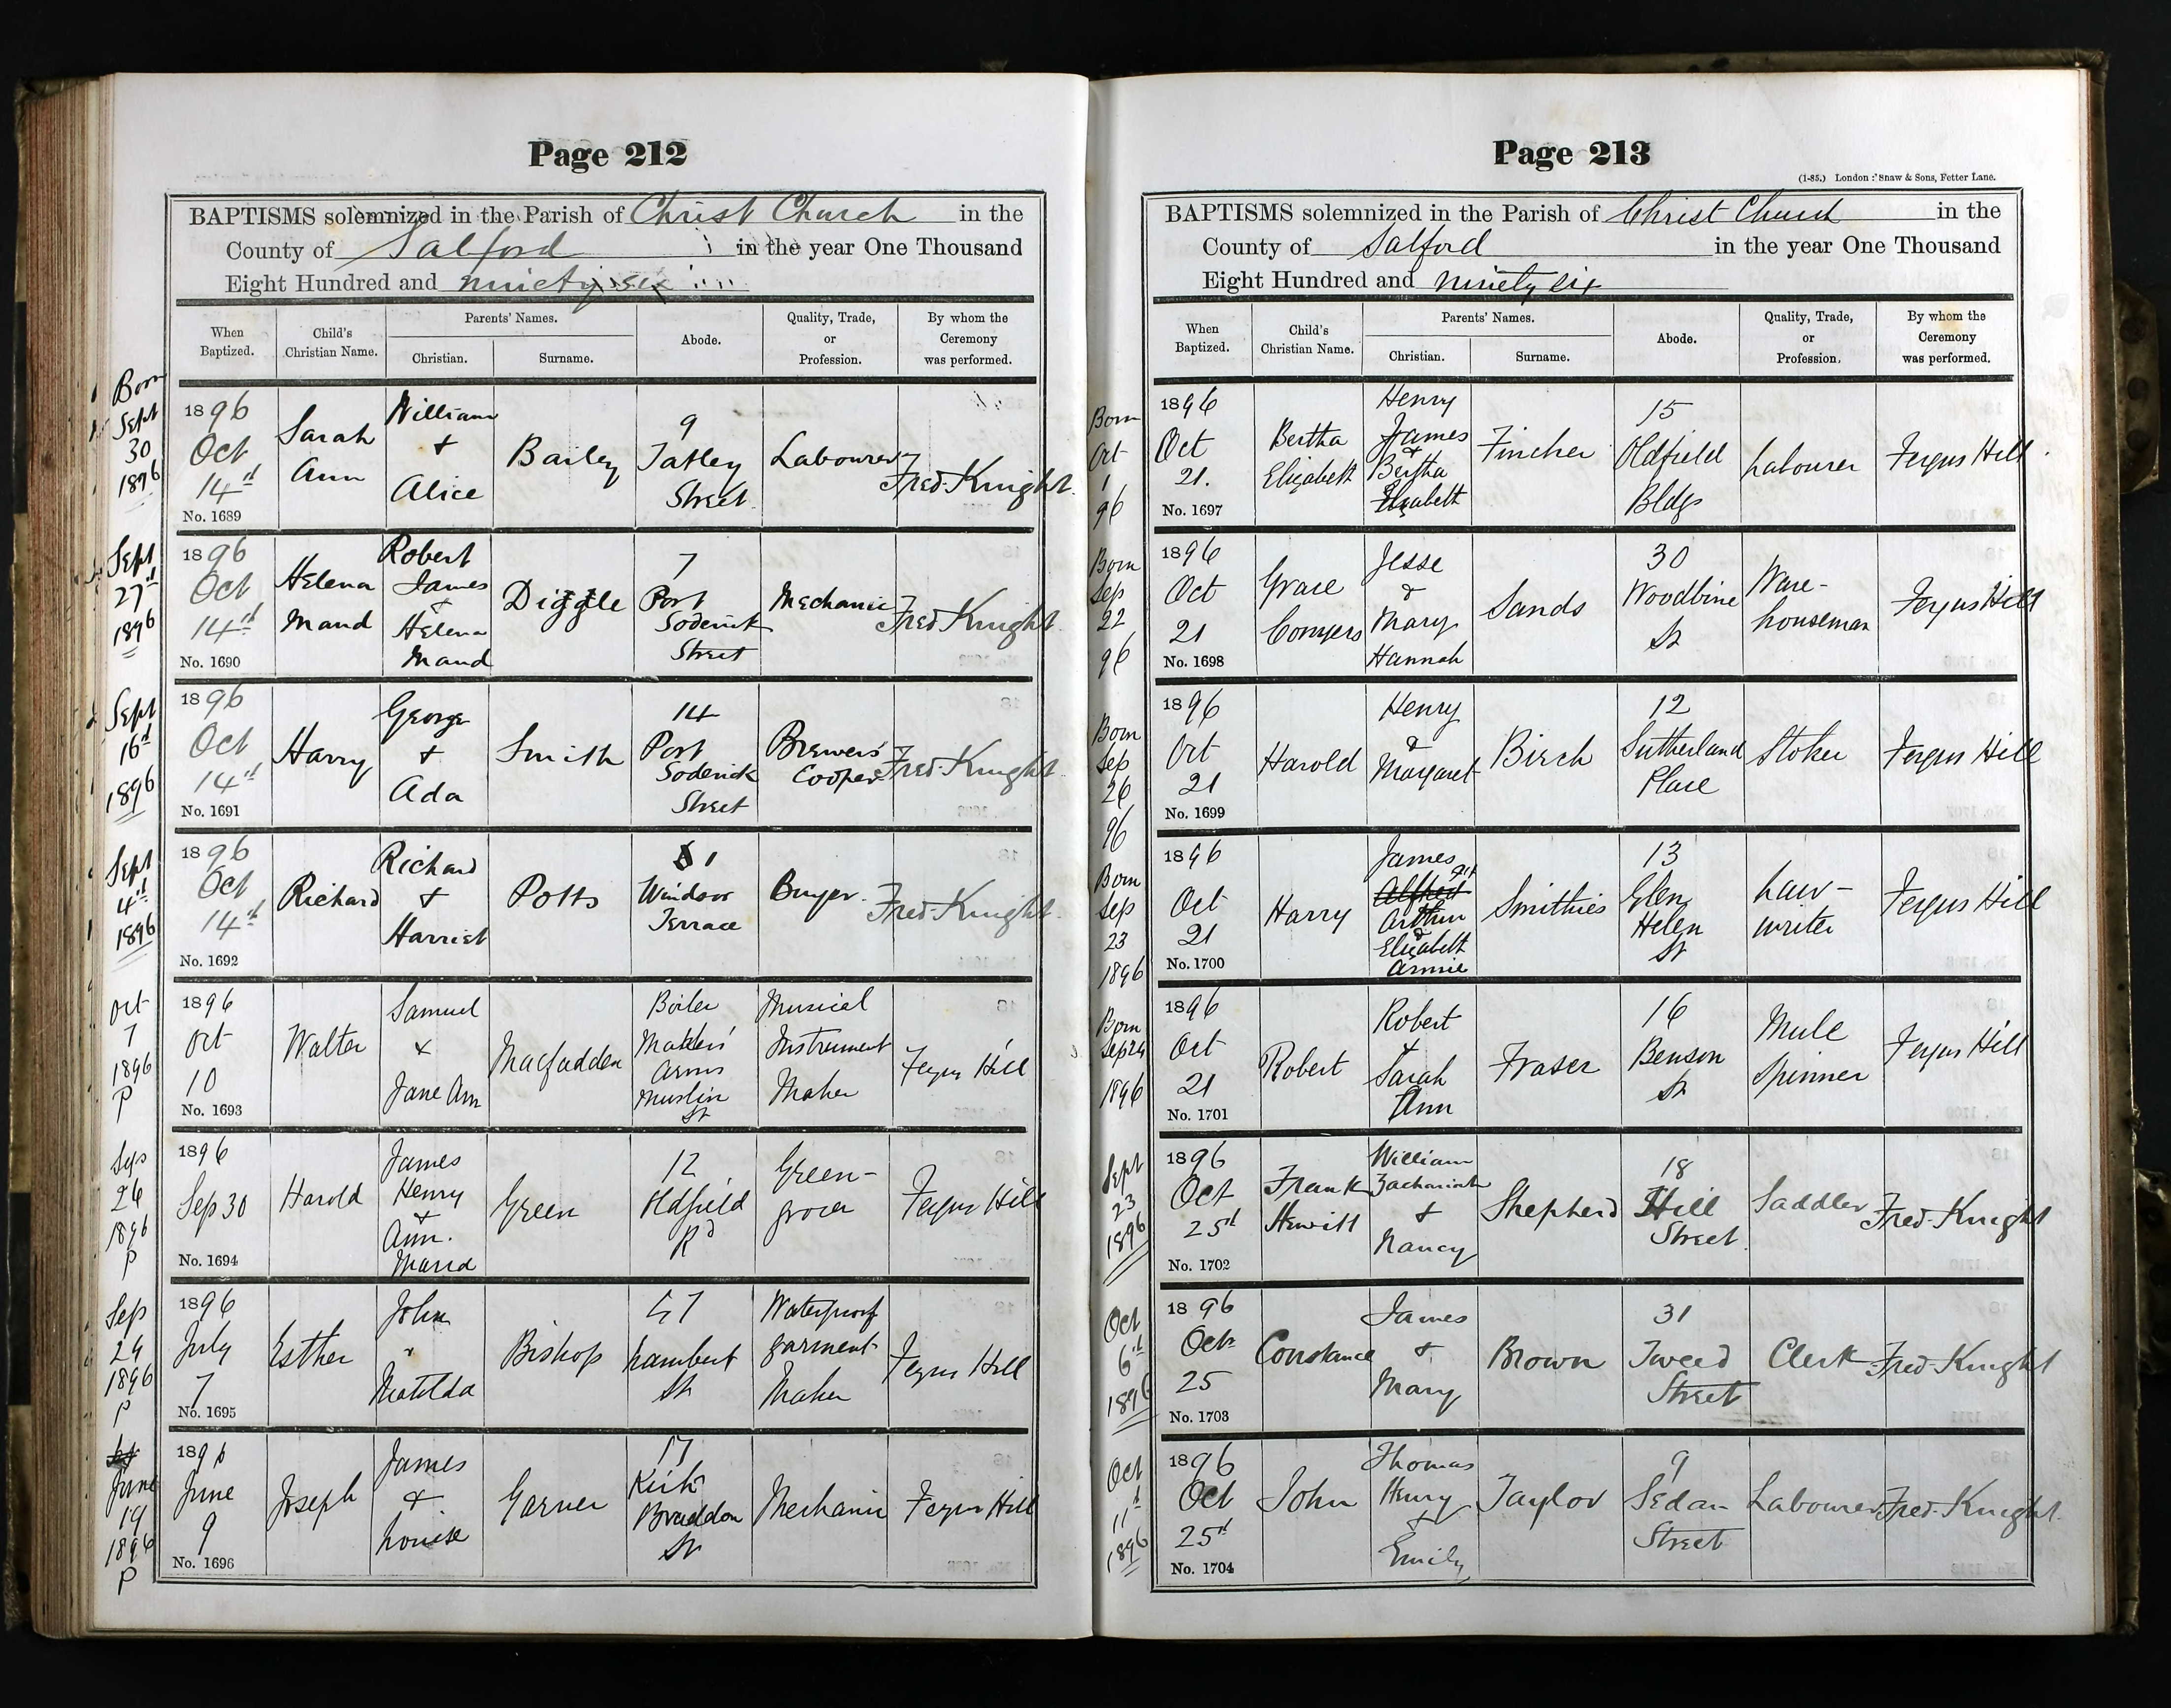 Page 212
BAPTISMS solemnized in the Parish of Christ Church in the
County of Salford in the year One Thousand
Eight Hundred and ninety six
When Baptized.
Child's Christian Name.
Parents' Names.
Christian.
Surname.
Abode.
Quality, Trade, or Profession.
By whom the Ceremony was performed.
Born Sept 30 1896
1896 Oct 14th
No. 1689
Sarah Ann
William + Alice
Bailey
9 Tatley Street
Labourer
Fred. Knight.
Sept 27th 1896
1896 Oct 14th
No. 1690
Helena Maud
Robert James + Helena Maud
Diggle
7 Port Soderick Street
Mechanic
Fred. Knight.
Sept 16th 1896
1896 Oct 14th
No. 1691
Harry
George + Ada
Smith
14 Port Soderick Street
Brewers' Cooper
Fred. Knight.
Sept 4th 1896
1896 Oct 14th
No. 1692
Richard
Richard + Harriet
Potts
1 Windsor Terrace
Buyer.
Fred. Knight.
Oct 7 1896 P
1896 Oct 10
No. 1693
Walter
Samuel + Jane Ann
Macfadden
Boiler Makers' Arms Muslin St
Musical Instrument Maker
Fergus Hill
Sep 26 1896 P
1896 Sep 30
No. 1694
Harold
James Henry + Ann. Maria
Green
12 Oldfield Rd
Green-grocer
Fergus Hill
Sep 24 1896 P
1896 July 7
No. 1695
Esther
John + Matilda
Bishop
47 Lambert St
Waterproof garment Maker
Fergus Hill
June 19 1896 P
1896 June 9
No. 1696
Joseph
James + Louise
Garner
17 Kirk Braddon St
Mechanic
Fergus Hill
Page 213
(1-85.) London: Shaw & Sons, Fetter Lane.
BAPTISMS solemnized in the Parish of Christ Church in the
County of Salford in the year One Thousand
Eight Hundred and ninety six
When Baptized.
Child's Christian Name.
Parents' Names.
Christian.
Surname.
Abode.
Quality, Trade, or Profession.
By whom the Ceremony was performed.
Born Oct 1 96
1896 Oct 21.
No. 1697
Bertha Elizabeth
Henry James & Bertha Elizabeth
Fincher
15 Oldfield Bldgs
Labourer
Fergus Hill.
Born Sep 22 96
1896 Oct 21
No. 1698
Grace Conyers
Jesse & Mary Hannah
Sands
30 Woodbine St
Ware-houseman
Fergus Hill
Born Sep 26 96
1896 Oct 21
No. 1699
Harold
Henry & Margaret
Birch
12 Sutherland Place
Stoker
Fergus Hill
Born Sep 23 1896
1896 Oct 21
No. 1700
Harry
James Alfred Arthur & Elizabeth Annie
Smithies
13 Glen Helen St
Law-writer
Fergus Hill
Born Sep 24 1896
1896 Oct 21
No. 1701
Robert
Robert + Sarah Ann
Fraser
16 Benson St
Mule Spinner
Fergus Hill
Sept 23 1896
1896 Oct 25th
No. 1702
Frank Hewitt
William Zachariah + Nancy
Shepherd
18 Hill Street.
Saddler
Fred. Knight
Oct 6th 1896
1896 Oct 25
No. 1703
Constance
James + Mary
Brown
31 Tweed Street
Clerk
Fred. Knight
Oct 11th 1896
1896 Oct 25th
No. 1704
John
Thomas Henry + Emily
Taylor
9 Sedan Street
Labourer
Fred. Knight.